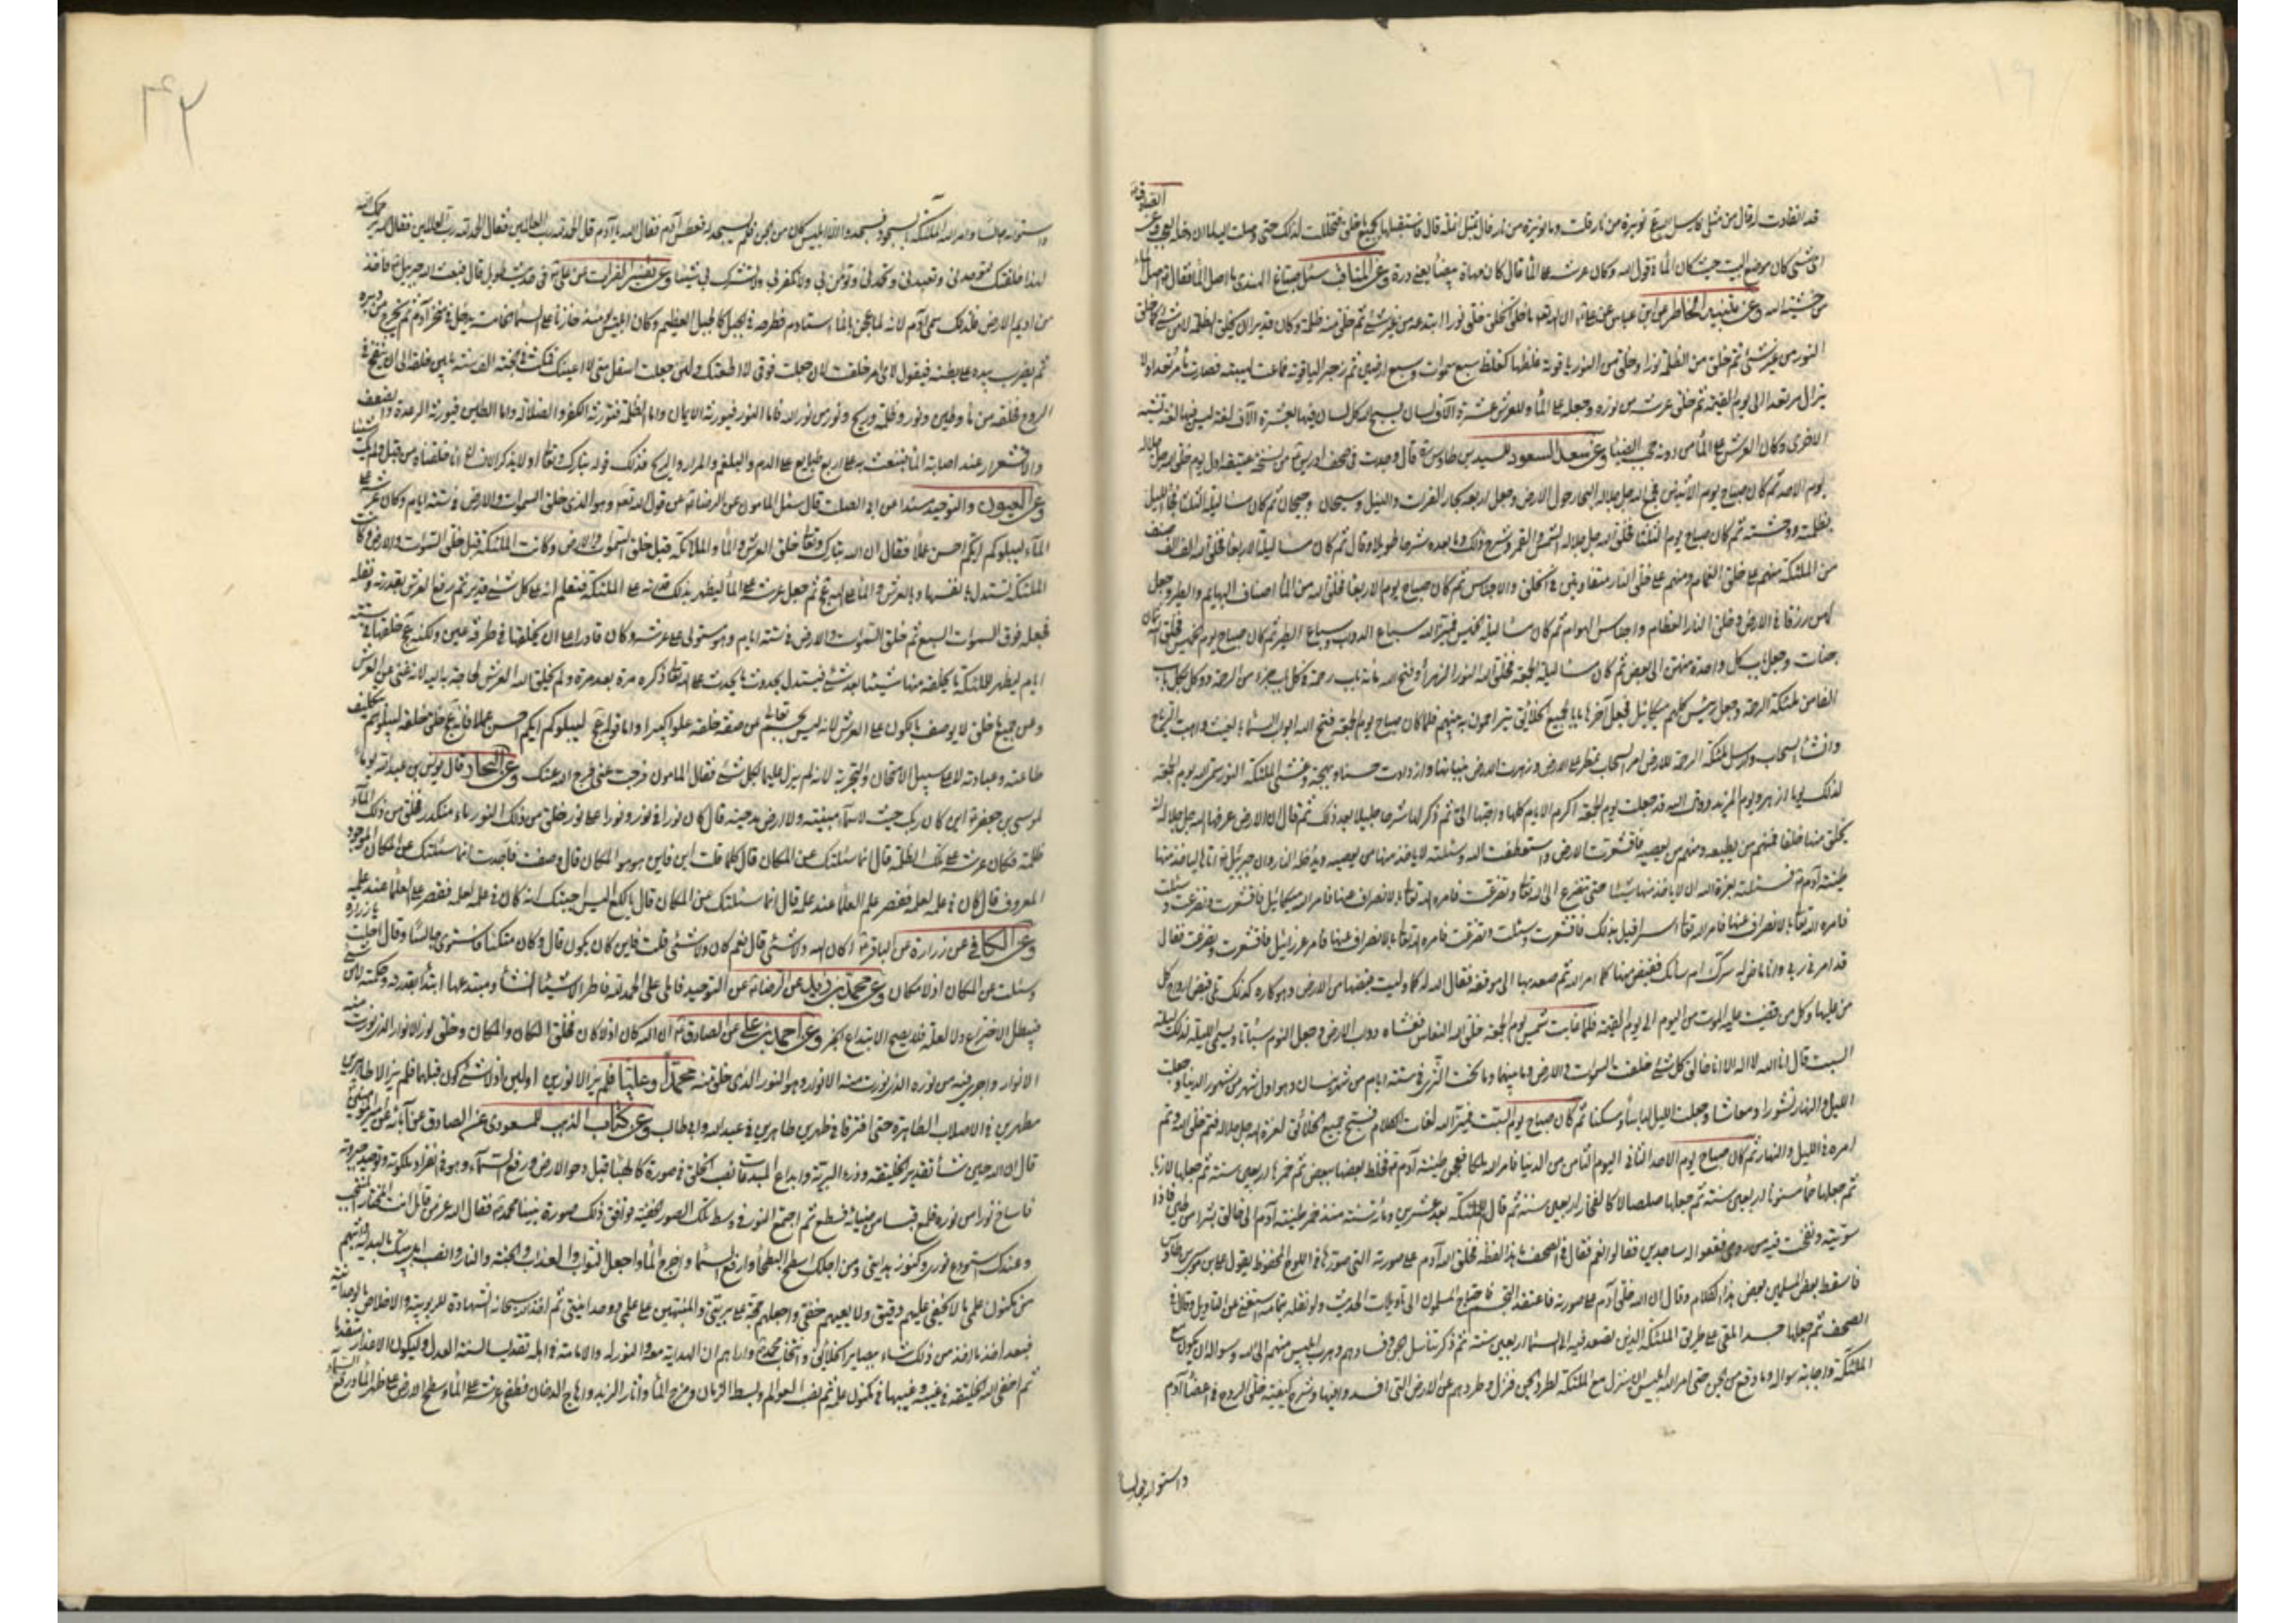 قد انقادت لك
فاستقبلها بجميع خلق فتخللت لذلك حتى
اى شىء كان موضع البيت حيث كان الماء فى قول الله وكان عرشه على الماء قال كان مهاة بيضاء يعنى درة وعن المناقب سئل صباع الهندى ما اصل الماء فقال ع اصل الماء
من خشية الله وعن تنبيه الخاطر عن ابن عباس عن على ان الله تعالى اول ما خلق الخلق خلق نورا ابتدعه من غير شىء ثم خلق منه ظلمة وكان قديرا ان يخلق الظلمة لا من شىء كما خلق
النور من غير شىء ثم خلق من الظلمة نورا وخلق من النور ياقوتة غلظها كغلظ سبع سموات وسبع ارضين ثم زجر الياقوتة فماعت لهيبته فصارت ماء مرتعدا ولا
يزال مرتعدا الى يوم القيمة ثم خلق عرشه من نوره وجعله على الماء وللعرش عشرة آلاف لسان يسبح الله كل لسان فيها بعشرة آلاف لغة ليس فيها لغة تشبه
الاخرى وكان العرش على الماء من دونه حجب الضباب وعن سعد السعود للسيد بن طاوس قال وجدت فى صحف ادريس من نسخة عتيقة اول يوم خلق الله جل جلاله
يوم الاحد ثم كان صباح يوم الاثنين فجمع الله جل جلاله البحار حول الارض وجعلها اربعة بحار الفرات والنيل وسيحان وجيحان ثم كان مساء ليلة الثلثا فجاء الليل
بظلمته ووحشته ثم كان صباح يوم الثلثا فخلق الله جل جلاله الشمس والقمر وشرح ذلك وما بعده شرحا طويلا وقال ثم كان مساء ليلة الاربعا فخلق الله الف الف صنف
من الملئكة منهم على خلق الغمام ومنهم على خلق النار متفاوتين فى الخلق والاجناس ثم كان صباح يوم الاربعا فخلق الله من الماء اصناف البهايم والطير وجعل
لهن رزقا فى الارض وخلق النار العظام واجناس الهوام ثم كان مساء ليلة الخميس فميز الله سباع الدواب وسباع الطير ثم كان صباح يوم الخميس فخلق الله ثمان
جنات وجعل باب كل واحدة منهن الى بعض ثم كان مساء ليلة الجمعة فخلق الله النور الزهراء وفتح الله مائة باب رحمة فى كل باب جزء من الرحمة ووكل بكل باب
الفا من ملئكة الرحمة وجعل رئيس كلهم ميكائيل فجعل آخرها بابا لجميع الخلائق يتراحمون به بينهم فلما كان صباح يوم الجمعة فتح الله ابواب السماء بالغيث واهبت الرياح
وانشأ السحاب وارسل ملئكة الرحمة للارض امر السحاب تمطر على الارض وزهرت الارض بنباتها وازدادت حسنا وبهجة وغشى الملئكة النور وسمى الله يوم الجمعة
لذلك يوما ازهر ويوم المزيد وقال الله قد جعلت يوم الجمعة اكرم الايام كلها واحبها الى ثم ذكر لها شرحا جليلا بعد ذلك ثم قال ان الارض عرفها الله جل جلاله انه
يخلق منها خلقا فمنهم من يطيعه ومنهم من يعصيه فاقشعرت الارض واستعطفت الله وسئلته لا يأخذ منها من يعصيه ويدخله النار وان جبرئيل اتاها ليأخذ منها
طينة آدم فسئلته بعزة الله ان لا يأخذ منها شيئا حتى تتضرع الى الله تعالى وتضرعت فامره الله تعالى بالانصراف عنها فامر الله ميكائيل فاقشعرت وتضرعت وسئلت
فامره الله تعالى بالانصراف عنها فامر الله تعالى اسرافيل بذلك فاقشعرت وسئلت وتضرعت فامره الله تعالى بالانصراف عنها فامر عزرئيل فاقشعرت وتضرعت فقال
قد امرنى ربى وانا ماض له سرك ام سائك فقبض منها كما امر الله ثم صعد بها الى موقفه فقال الله له كما وليت قبضها من الارض وهو كاره كذلك تلى قبض ارواح كل
من عليها وكل من قضيت عليه الموت من اليوم الى يوم القيمة فلما غابت شمس يوم الجمعة خلق الله النعاس فغشاه دواب الارض وجعل النوم سباتا وسمى الليلة لذلك ليلة
السبت قال انا الله لا اله الا انا خالق كل شىء خلقت السموات والارض وما بينهما وما تحت الثرى فى ستة ايام من شهر نيسان وهو اول شهر من شهور الدنيا وجعلت
الليل والنهار نشورا ومعاشا وجعلت الليل لباسا وسكنا ثم كان صباح يوم السبت فميز الله لغات الكلام فسبح جميع الخلائق لعزة الله جل جلاله فتم خلق الله وتم
امره فى الليل والنهار ثم كان صباح يوم الاحد الثانى اليوم الثامن من الدنيا فامر الله ملكا فعجن طينة آدم فخلط بعضها ببعض ثم خمرها اربعين سنة ثم جعلها لازبا
ثم جعلها حمأ مسنونا اربعين سنة ثم جعلها صلصالا كالفخار اربعين سنة ثم قال للملئكة بعد عشرين ومائة سنة منذ خمر طينة آدم انى خالق بشرا من طين فاذا
سويته ونفخت فيه من روحى فقعوا له ساجدين فقالوا نعم فقال فى الصحف ما هذا لفظه فخلق الله آدم على صورته التى صورها فى اللوح المحفوظ يقول على بن موسى بن طاوس
فاسقط بعض المسلمين بعض هذا الكلام وقال ان الله خلق آدم على صورته فاعتقد التجسيم فاحتاج المسلمون الى تأويلات الحديث ولو نقله بتمامه استغنى عن التأويل وقال فى
الصحف ثم جعلها جسدا ملقى على طريق الملئكة الذين تصعد فيه الى السماء اربعين سنة ثم ذكر تناسل الجن وفسادهم وهرب ابليس منهم الى الله وسواله ان يكون مع
الملئكة واجابة سواله وما وقع من الجن حتى امر الله ابليس ان ينزل مع الملئكة لطرد الجن فنزل وطردهم عن الارض التى افسدوا فيها وشرح كيفية خلق الروح فى اعضاء آدم
واستوائه جالسا
واستوائه جالسا وامر الله الملئكة بالسجود فسجدوا الا ابليس كان من الجن فلم يسجد له فعطس آدم فقال الله يا آدم قل الحمد لله رب العالمين فقال الحمد لله رب العالمين فقال الله يرحمك الله
لهذا خلقتك لتوحدنى وتعبدنى وتحمدنى وتؤمن بى ولا تكفر بى ولا تشرك بى شيئا وعن تفسير الفرات عن على فى حديث طويل قال فبعث الله جبرئيل فاخذ
من اديم الارض فلذلك سمى آدم لانه لما عجن بالماء استأدم فطرحه فى الجبل كالجبل العظيم وكان ابليس يومئذ خازنا على السماء الخامسة يدخل فى منخر آدم ثم يخرج من دبره
ثم يضرب بيده على بطنه فيقول لاى امر خلقت لان جعلت فوقى لا اطعتك ولئن جعلت اسفل منى لا اعينك فمكث فى الجنة الف سنة ما بين خلقه الى ان ينفخ فيه
الروح فخلقه من ماء وطين ونور وظلمة وريح ونور من نور الله فاما النور فيورثه الايمان واما الظلمة فتورثه الكفر والضلالة واما الطين فيورثه الرعدة والضعف
والاقشعرار عند اصابة الماء فينبعث به على اربع طبايع على الدم والبلغم والمرار والريح فذلك قوله تبارك وتعالى اولا يذكر الانسان انا خلقناه من قبل ولم يك شيئا
وعن العيون والتوحيد مسندا عن ابى الصلت قال سئل المامون عن الرضا عن قول الله تعالى وهو الذى خلق السموات والارض فى ستة ايام وكان عرشه على
الماء ليبلوكم ايكم احسن عملا فقال ان الله تبارك وتعالى خلق العرش والماء والملائكة قبل خلق السموات والارض وكانت الملئكة قبل خلق السموات والارض وكانت
الملئكة تستدل بانفسها وبالعرش والماء على الله عز وجل ثم جعل عرشه على الماء ليظهر بذلك قدرته على الملئكة فتعلم انه على كل شىء قدير ثم رفع العرش بقدرته ونقله
فجعله فوق السموات السبع ثم خلق السموات والارض فى ستة ايام وهو مستول على عرشه وكان قادرا على ان يخلقها فى طرفة عين ولكنه عز وجل خلقها فى ستة
ايام ليظهر للملئكة ما يخلقه منها شيئا بعد شىء فيستدل بحدوث ما يحدث على الله تعالى ذكره مرة بعد مرة ولم يخلق الله العرش لحاجة به اليه لانه غنى عن العرش
وعن جميع ما خلق لا يوصف بالكون على العرش لانه ليس بجسم تعالى عن صفة خلقه علوا كبيرا واما قوله عز وجل ليبلوكم ايكم احسن عملا فانه عز وجل خلق خلقه ليبلوهم بتكليف
طاعته وعبادته لا على سبيل الامتحان والتجربة لانه لم يزل عليما بكل شىء فقال المامون فرجت عنى فرج الله عنك وعن البحار قال يونس بن عبدالرحمن يوما
لموسى بن جعفر اين كان ربك حيث لا سماء مبنية ولا ارض مدحية قال كان نورا فى نور ونورا على نور خلق من ذلك النور ماء منكدرا فخلق من ذلك الماء
ظلمة فكان عرشه على تلك الظلمة قال انما سئلتك عن المكان قال كلما قلت اين فاين هو المكان قال وصفت فاجدت انما سئلتك عن المكان الموجود
المعروف قال كان فى علمه لعلمه فقصر علم العلماء عند علمه قال انما سئلتك عن المكان قال يالكع اليس اجبتك انه كان فى علمه لعلمه فقصر علم العلماء عند علمه
وعن الكافى عن زرارة عن الباقر اكان الله ولا شىء قال نعم كان ولا شىء قلت فاين كان يكون قال وكان متكئا فاستوى جالسا وقال احلت يا زرارة
وسئلت عن المكان اذ لا مكان وعن محمد بن زيد عن الرضا عن التوحيد فاملى على الحمد لله فاطر الاشياء انشاء ومبتدعها ابتداء بقدرته وحكمته لا من شىء
فيبطل الاختراع ولا لعلة فلا يصح الابتداع الخبر وعن احمد بن على عن الصادق ان الله كان اذ لا كان فخلق الكان والمكان وخلق نور الانوار الذى نورت منه
الانوار واجرى فيه من نوره الذى نورت منه الانوار وهو النور الذى خلق منه محمدا وعليا فلم يزالا نورين اولين اذ لا شىء كون قبلهما فلم يزالا طاهرين
مطهرين فى الاصلاب الطاهرة حتى افترقا فى اطهر طاهرين فى عبد الله وابى طالب وعن كتاب الذهب للمسعودى عن الصادق عن آبائه عن امير المؤمنين
قال ان الله حين شاء تقدير الخليقة وذرء البرية وابداع المبدعات نصب الخلق فى صورة كالهباء قبل دحو الارض ورفع السماء وهو فى انفراد ملكوته وتوحد جبروته
فاساح نورا من نوره فلمع قبسا من ضيائه فسطع ثم اجتمع النور فى وسط تلك الصور الخفية فوافق ذلك صورة نبينا محمد فقال الله عز من قائل انت المختار المنتخب
وعندك استودع نورى وكنوز هدايتى ومن اجلك اسطح البطحاء وارفع السماء واجرى الماء واجعل الثواب والعذاب والجنة والنار وانصب اهل بيتك بالهداية واتيهم
من مكنون علمى ما لا يخفى عليهم دقيق ولا يعييهم خفى واجعلهم حجة على بريتى والمنبهين على علمى ووحدانيتى ثم اخذ الله سبحانه الشهادة للربوبية والاخلاص بالوحدانية
فبعد اخذ ما اخذ من ذلك شاء ببصاير الخلائق وانتخاب محمد واراهم ان الهداية معه والنور له والامامة فى اهله تقديما لسنة العدل وليكون الاعذار متقدما
ثم اخفى الله الخليقة فى غيبه وغيبها فى مكنون علمه ثم نصب العوالم وبسط الزمان ومزج الماء واثار الزبد واهاج الدخان فطفى عرشه على الماء وسطح الارض على ظهر الماء ورفع السماء